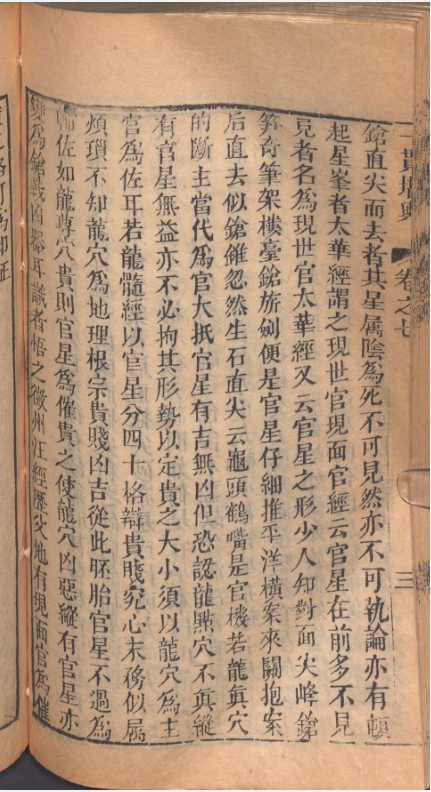 一貫堪輿 卷之七 三
鎗直尖而去者其星属陰為死不可見然亦不可執論亦有頓
起星峯者太華經謂之現世官現面官經云官星在前多不見
見者名為現世官太華經又云官星之形少人知對面尖峰鎗
笋奇筆架樸臺鎗旂劍便是官星仔細推平洋橫案來關抱案
后直去似鎗雖忽然生石直尖云龜頭鶴嘴是官機若龍真穴
的斷主當代為官大抵官星有吉無凶但恐認龍點穴不真縱
有官星無益亦不必拘其形勢以定貴之大小須以龍穴為主
官為佐耳若龍髓經以官星分四十格辯貴賤究心末務似属
煩瑣不知龍穴為地理根宗貴賤凶吉從此胚胎官星不過為
佐如龍尊穴貴則官星為催貴之使龍穴凶惡縱有官星亦
變為鎗戟凶器耳識者悟之徽州汪經歷父地有現面官為催
之格可為印証